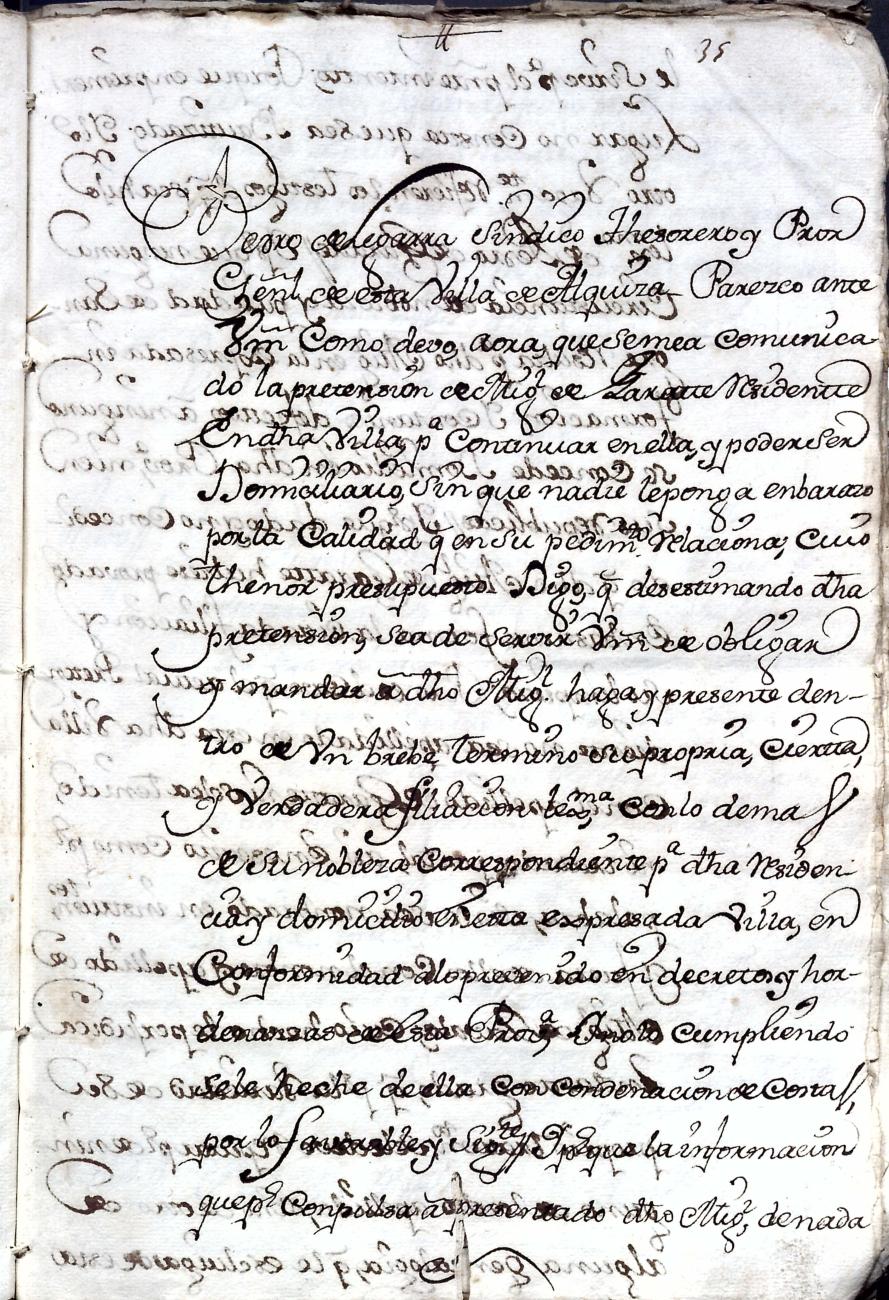 35
Pedro de Legarra Sindico Thesorero y Pror
Genl de esta Villa de Alquiza Parezco ante
Vm Como devo, aora, que se me a Comunica
do la pretension de Migl de Zaratte Residentte
En dha Villa, pa Continuar en ella, y poder ser
Domiciliario, sin que nadie le ponga enbarazo
por la Calidad q en su pedimto Relaciona, Cuio
thenor presupuesto Digo, q desestimando dha
pretension, sea de servir Vm de obligar
y mandar a dho Migl haga y presente den-
tro de Vn brebe termino su propria, Cierta,
y Verdadera filiacion con lo demas
de su nobleza Correspondiente pa dha Residen-
cia y domicilio En esta expresada Villa, en
Conformidad a lo prevenido en decretos y hor-
denanzas de Esta Proa, Y no lo Cumpliendo
se le heche de ella Con Condenacion de Costas,
por lo favorable y sigte Y porque la informacion
que pr Conpulsa a presentado dho Migl, de nada